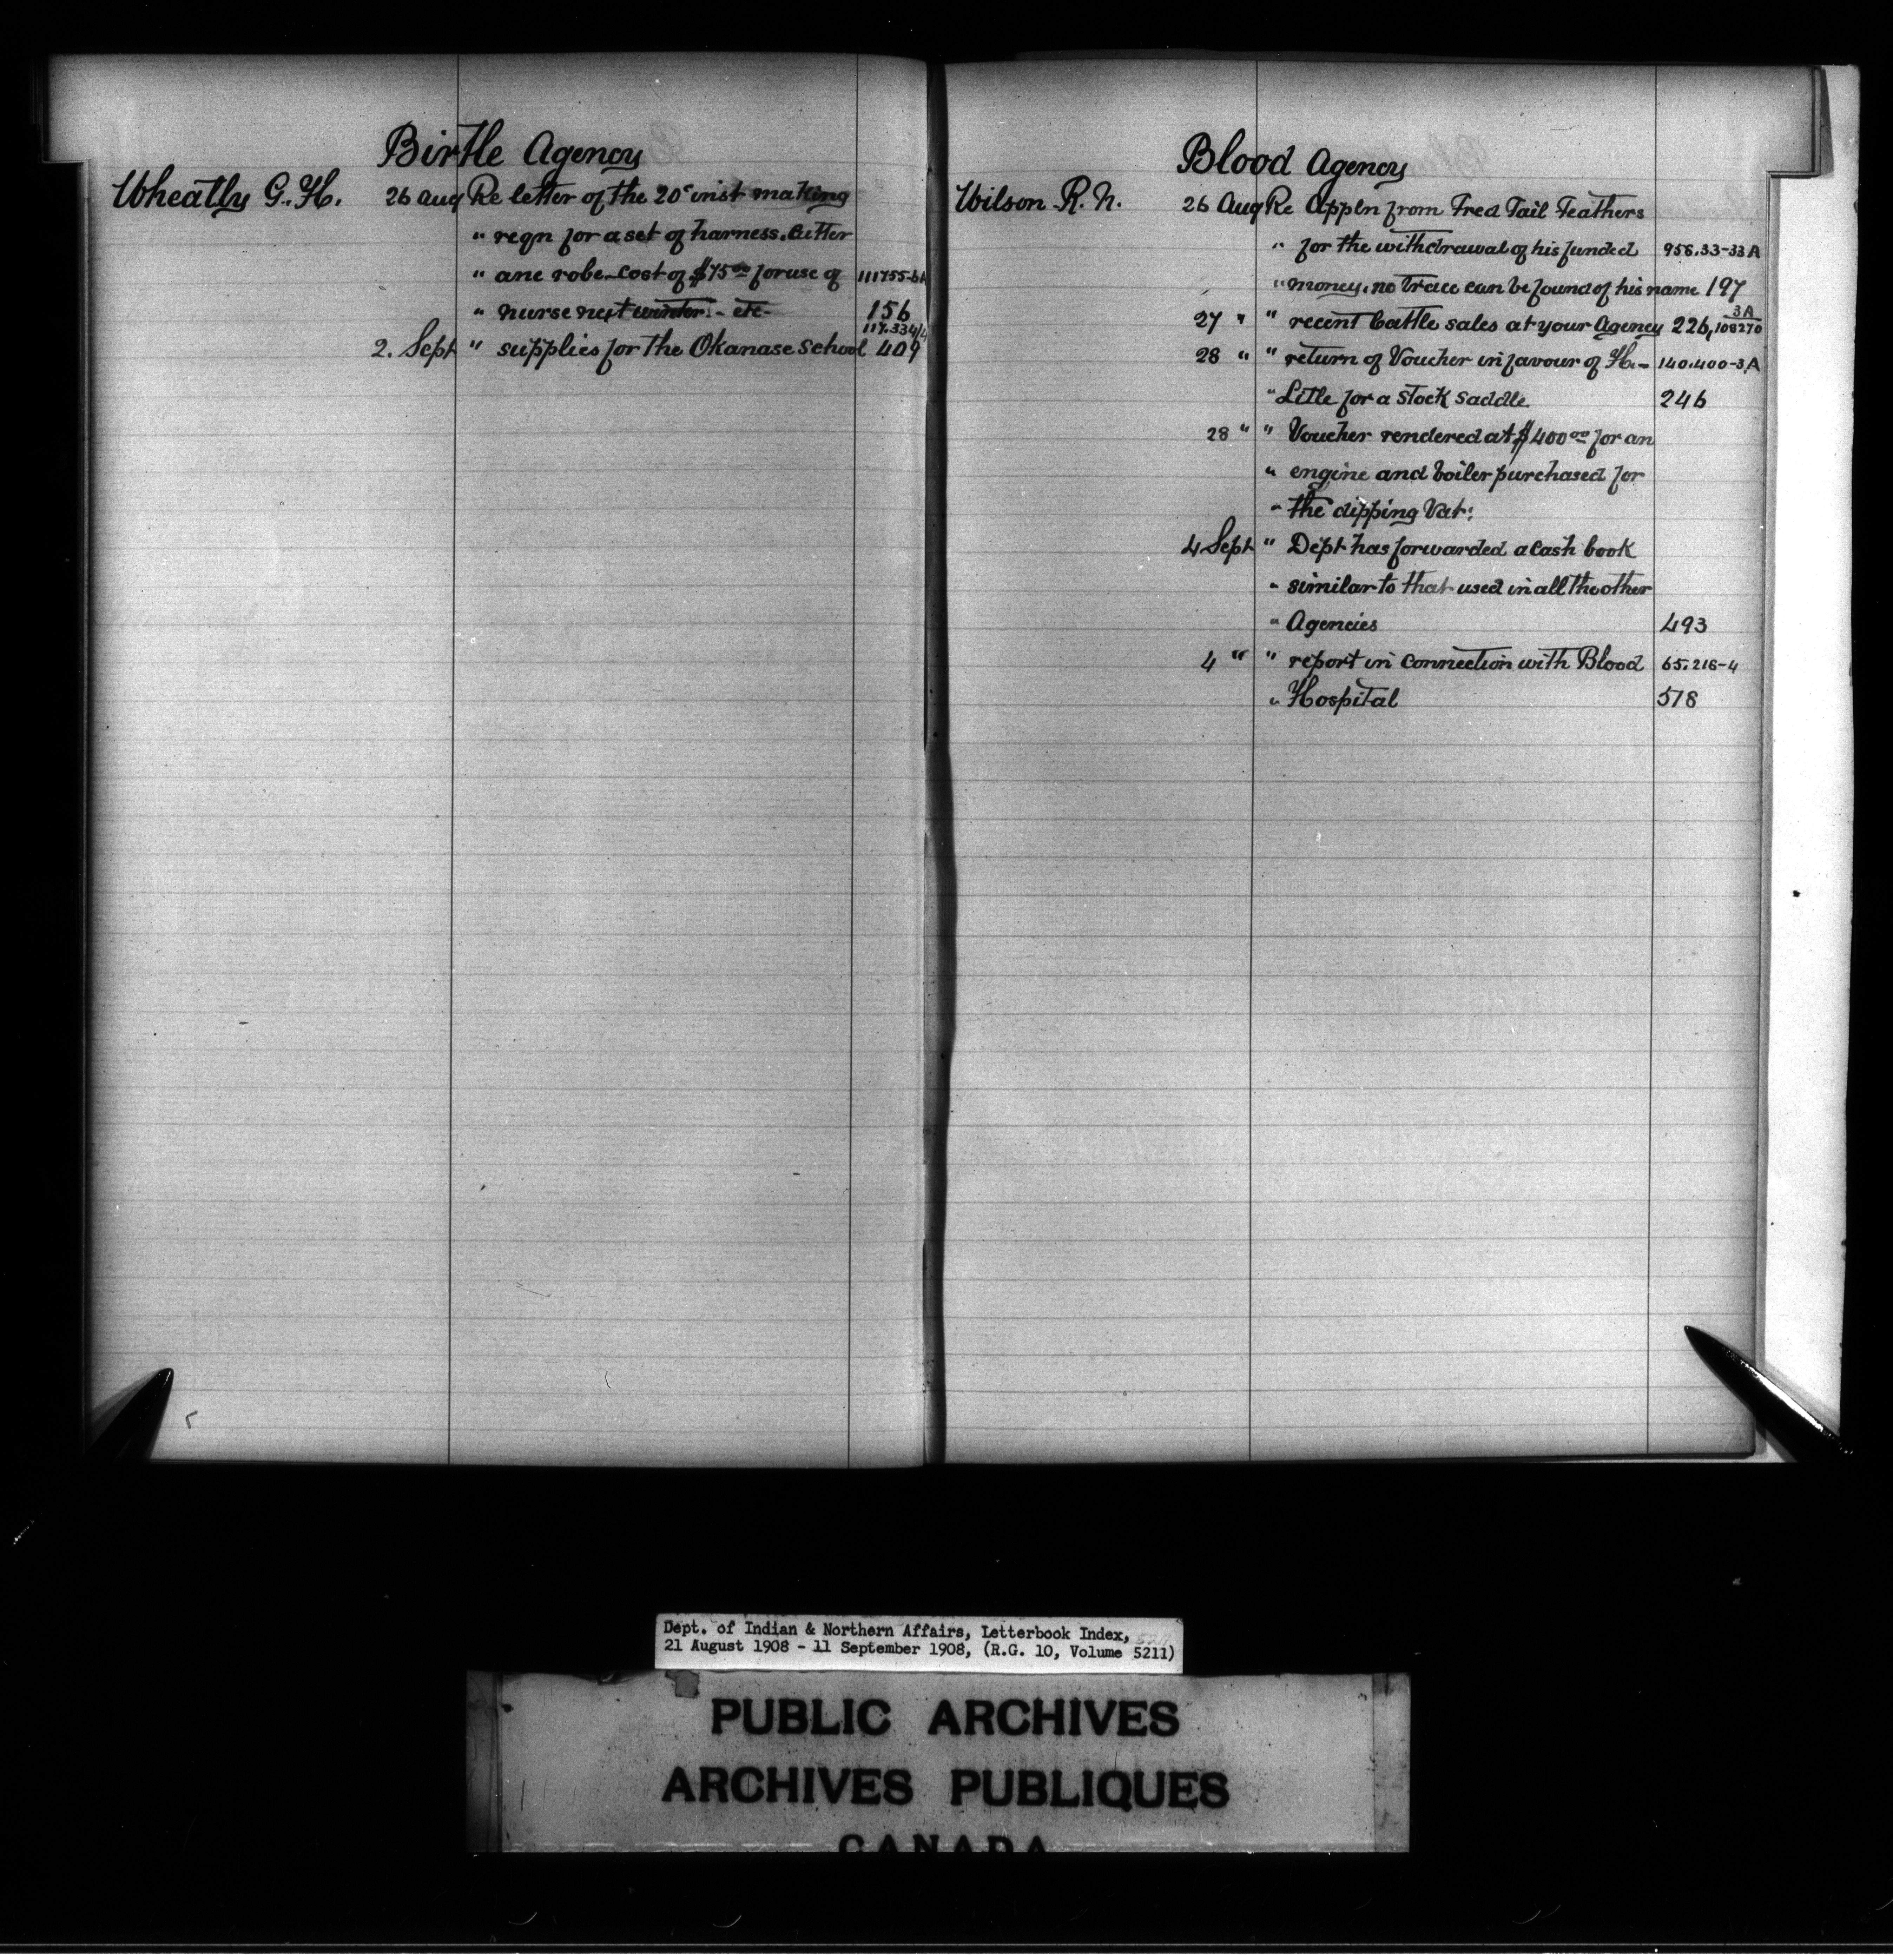 Birtle Agency
Wheatly G. H. 26 Aug Re letter of the 20" inst making
" reqn for a set of harness. Cutter
" ane robe - cost of $75 00 for use of 111755-6A
" nurse next winter. - etc - 156
117.334/4
2. Sept " supplies for the Okanase School 409
Blood Agency
Wilson R. N. 26 Aug Re Appln from Fred Tail Feathers
" for the withdrawal of his funded 956.33-33A
" money. no trace can be found of his name 197
27 " " recent Cattle sales at your Agency 226, 3A 108270
28 " " return of Voucher in favour of H. - 140.400-3A
" Litle for a Stock Saddle. 246
28 " " Voucher rendered at $400 00 for an
" engine and boiler purchased for
" the dipping Vat.
4 Sept " Dept has forwarded a Cash book
" similar to that used in all the other
" Agencies 493
4 " " report in Connection with Blood 65.216-4
" Hospital 578
Dept. of Indian & Northern Affairs, Letterbook Index,
21 August 1908 - 11 September 1908, (R.G. 10, Volume 5211)
PUBLIC ARCHIVES
ARCHIVES PUBLIQUES
CANADA